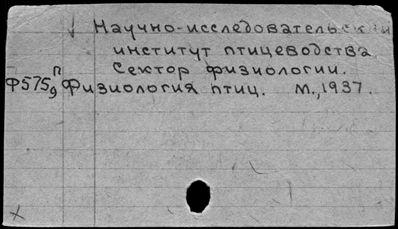 Научно-исследовательский
институт птицеводства.
Сектор физиологии.
П
Ф575 Физиология птиц. М.,1937.
9